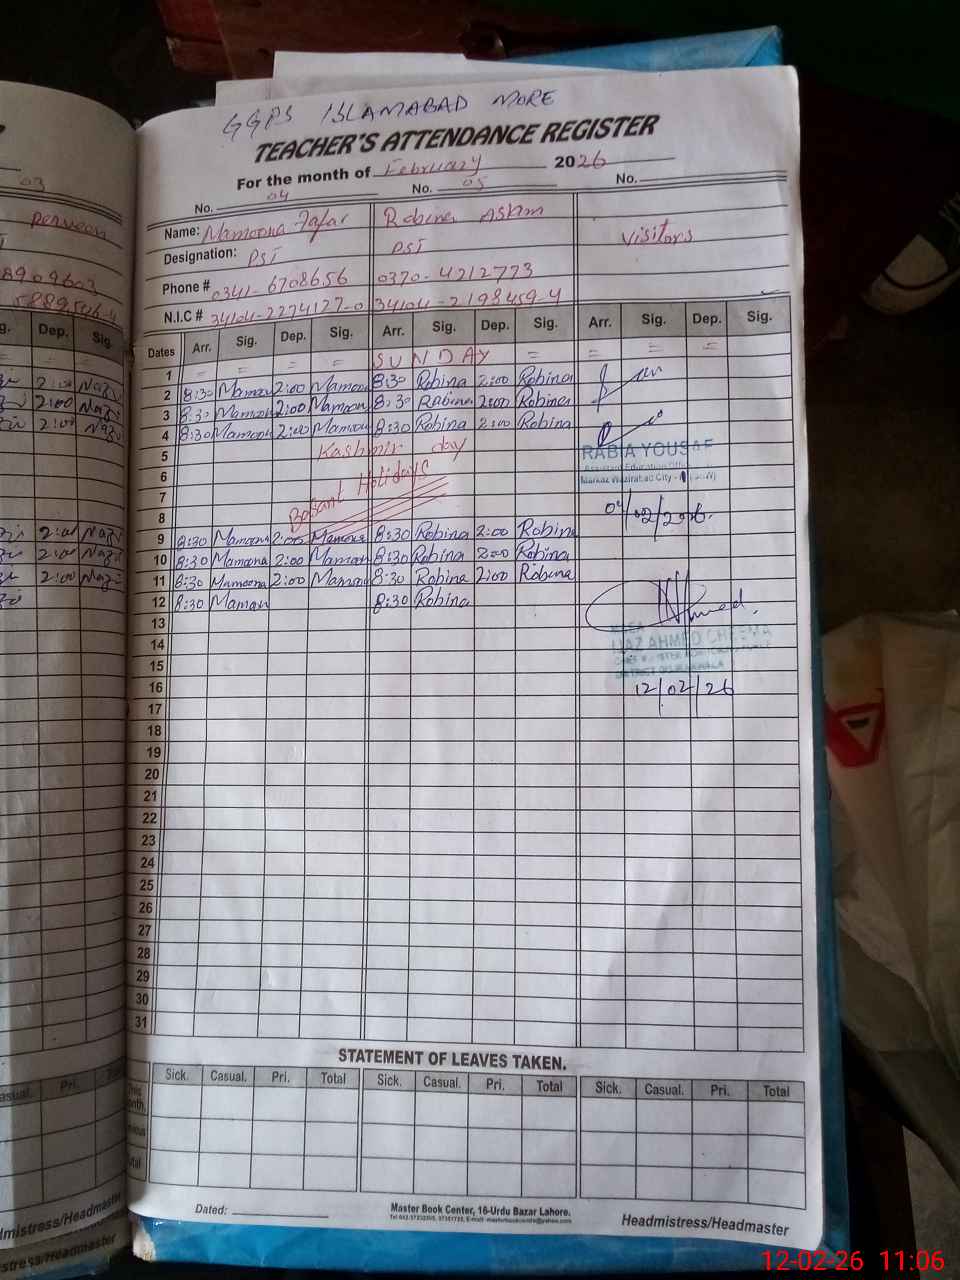 GGPS ISLAMABAD MORE
TEACHER'S ATTENDANCE REGISTER
For the month of February 2026
No. 04 No. 05 No.
Name: Mamoona Zafar Robina Aslam Visitors
Designation: PST PST
Phone # 0341-6708656 0370-4212773
N.I.C # 34104-2274127-0 34104-2198459-4
Dates Arr. Sig. Dep. Sig. Arr. Sig. Dep. Sig. Arr. Sig. Dep. Sig.
1 = = = = SUNDAY = = = =
2 8:30 Mamoona 2:00 Mamoona 8:30 Robina 2:00 Robina
3 8:30 Mamoona 2:00 Mamoona 8:30 Robina 2:00 Robina
4 8:30 Mamoona 2:00 Mamoona 8:30 Robina 2:00 Robina
5 Kashmir day
RABIA YOUSAF
Assistant Education Officer
Markaz Wazirabad City
6
7 Basant Holidays
8 04/02/2026.
9 8:30 Mamoona 2:00 Mamoona 8:30 Robina 2:00 Robina
10 8:30 Mamoona 2:00 Mamoona 8:30 Robina 2:00 Robina
11 8:30 Mamoona 2:00 Mamoona 8:30 Robina 2:00 Robina
12 8:30 Maman 8:30 Robina
13
14 IJAZ AHMED CHEEMA
15
16 12/02/26
17
18
19
20
21
22
23
24
25
26
27
28
29
30
31
STATEMENT OF LEAVES TAKEN.
Sick. Casual. Pri. Total Sick. Casual. Pri. Total Sick. Casual. Pri. Total
Dated:
Master Book Center, 16-Urdu Bazar Lahore.
Headmistress/Headmaster
12-02-26 11:06